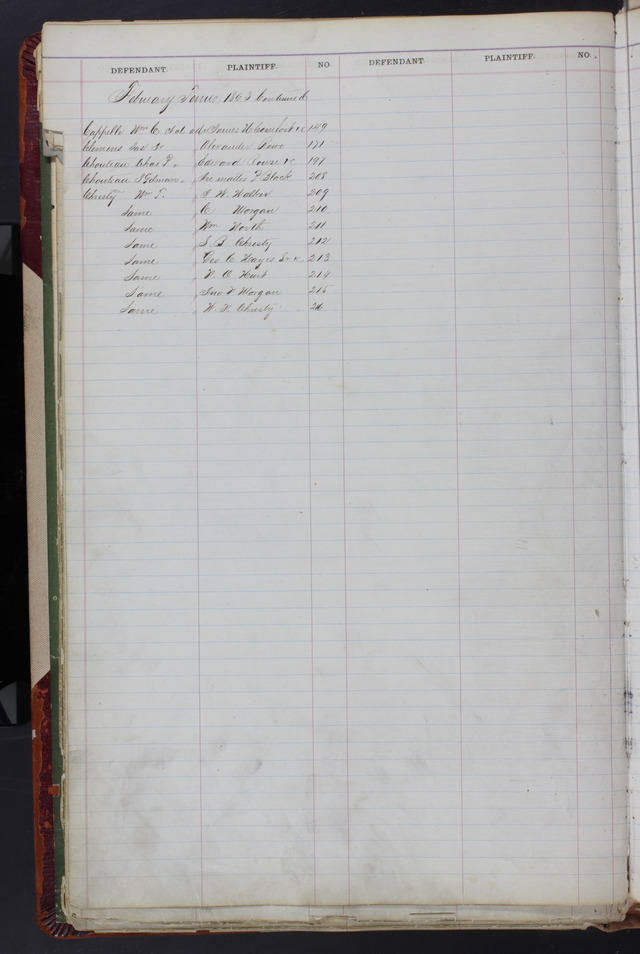 DEFENDANT. PLAINTIFF. NO. DEFENDANT. PLAINTIFF. NO.
February Term 1863 Continued
Cappelle Wm C et al adr James H Comfort &c 149
Clemens Jas Jr Alexander Lowe 171
Chouteau Chas P. Edward Rouse &c 197
Chouteau & P Block 208
Christy Wm T. J W Walker 209
Same C Morgan 210
Same Wm North 211
Same S B Christy 212
Same Geo C Hayes Sr &c 213
Same N O Hunt 214
Same Jno V Morgan 215
Same W. F. Christy 216